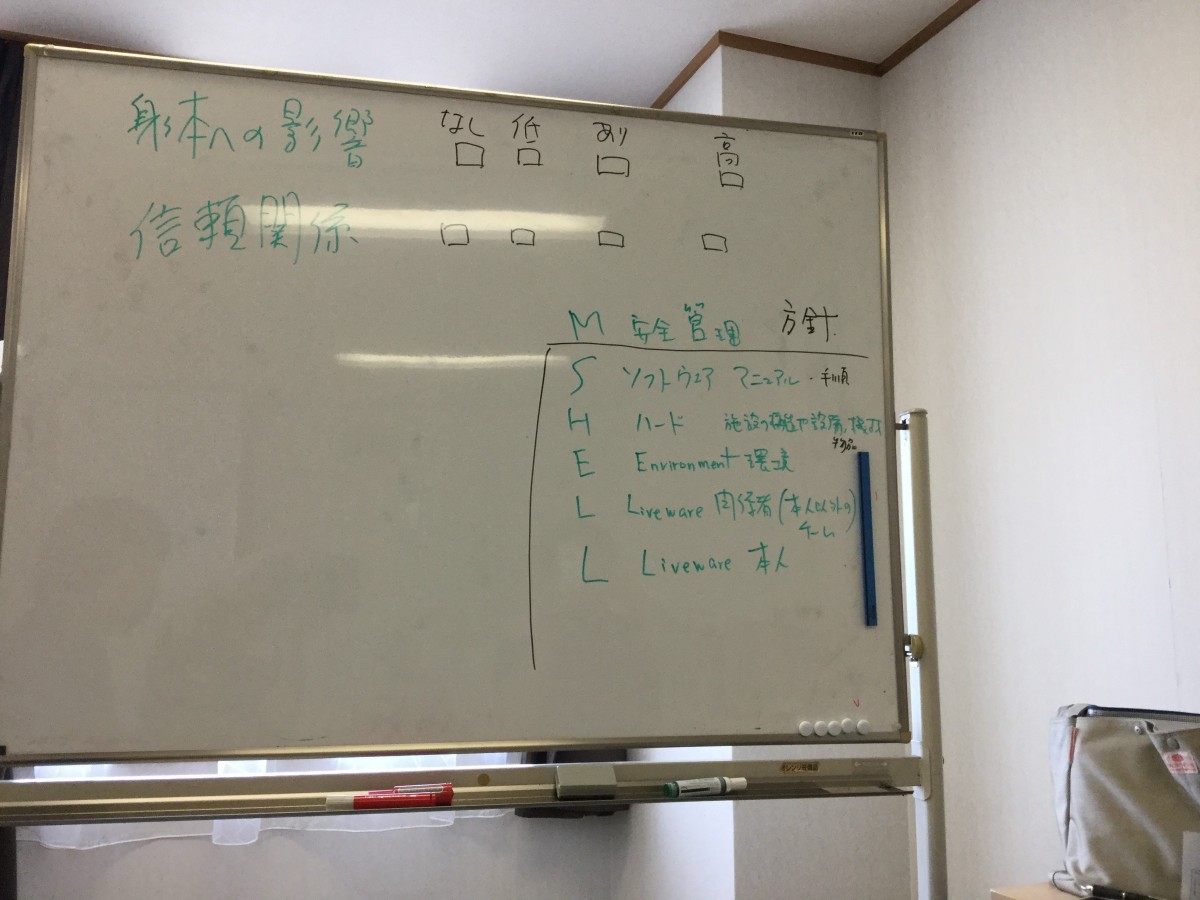 なし 低 あり 高
身体への影響 □ □ □ □
信頼関係 □ □ □ □
M 安全管理 方針
S ソフトウエア マニュアル・手順
H ハード 施設の構造や設備、機材
E Environment 環境
L Liveware 関係者(本人以外の
チーム
L Liveware 本人